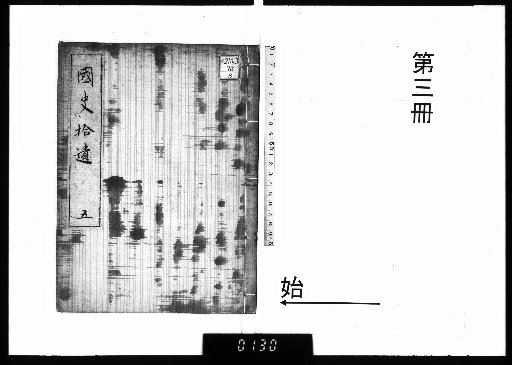 第三冊
始
國史拾遺
五
0130